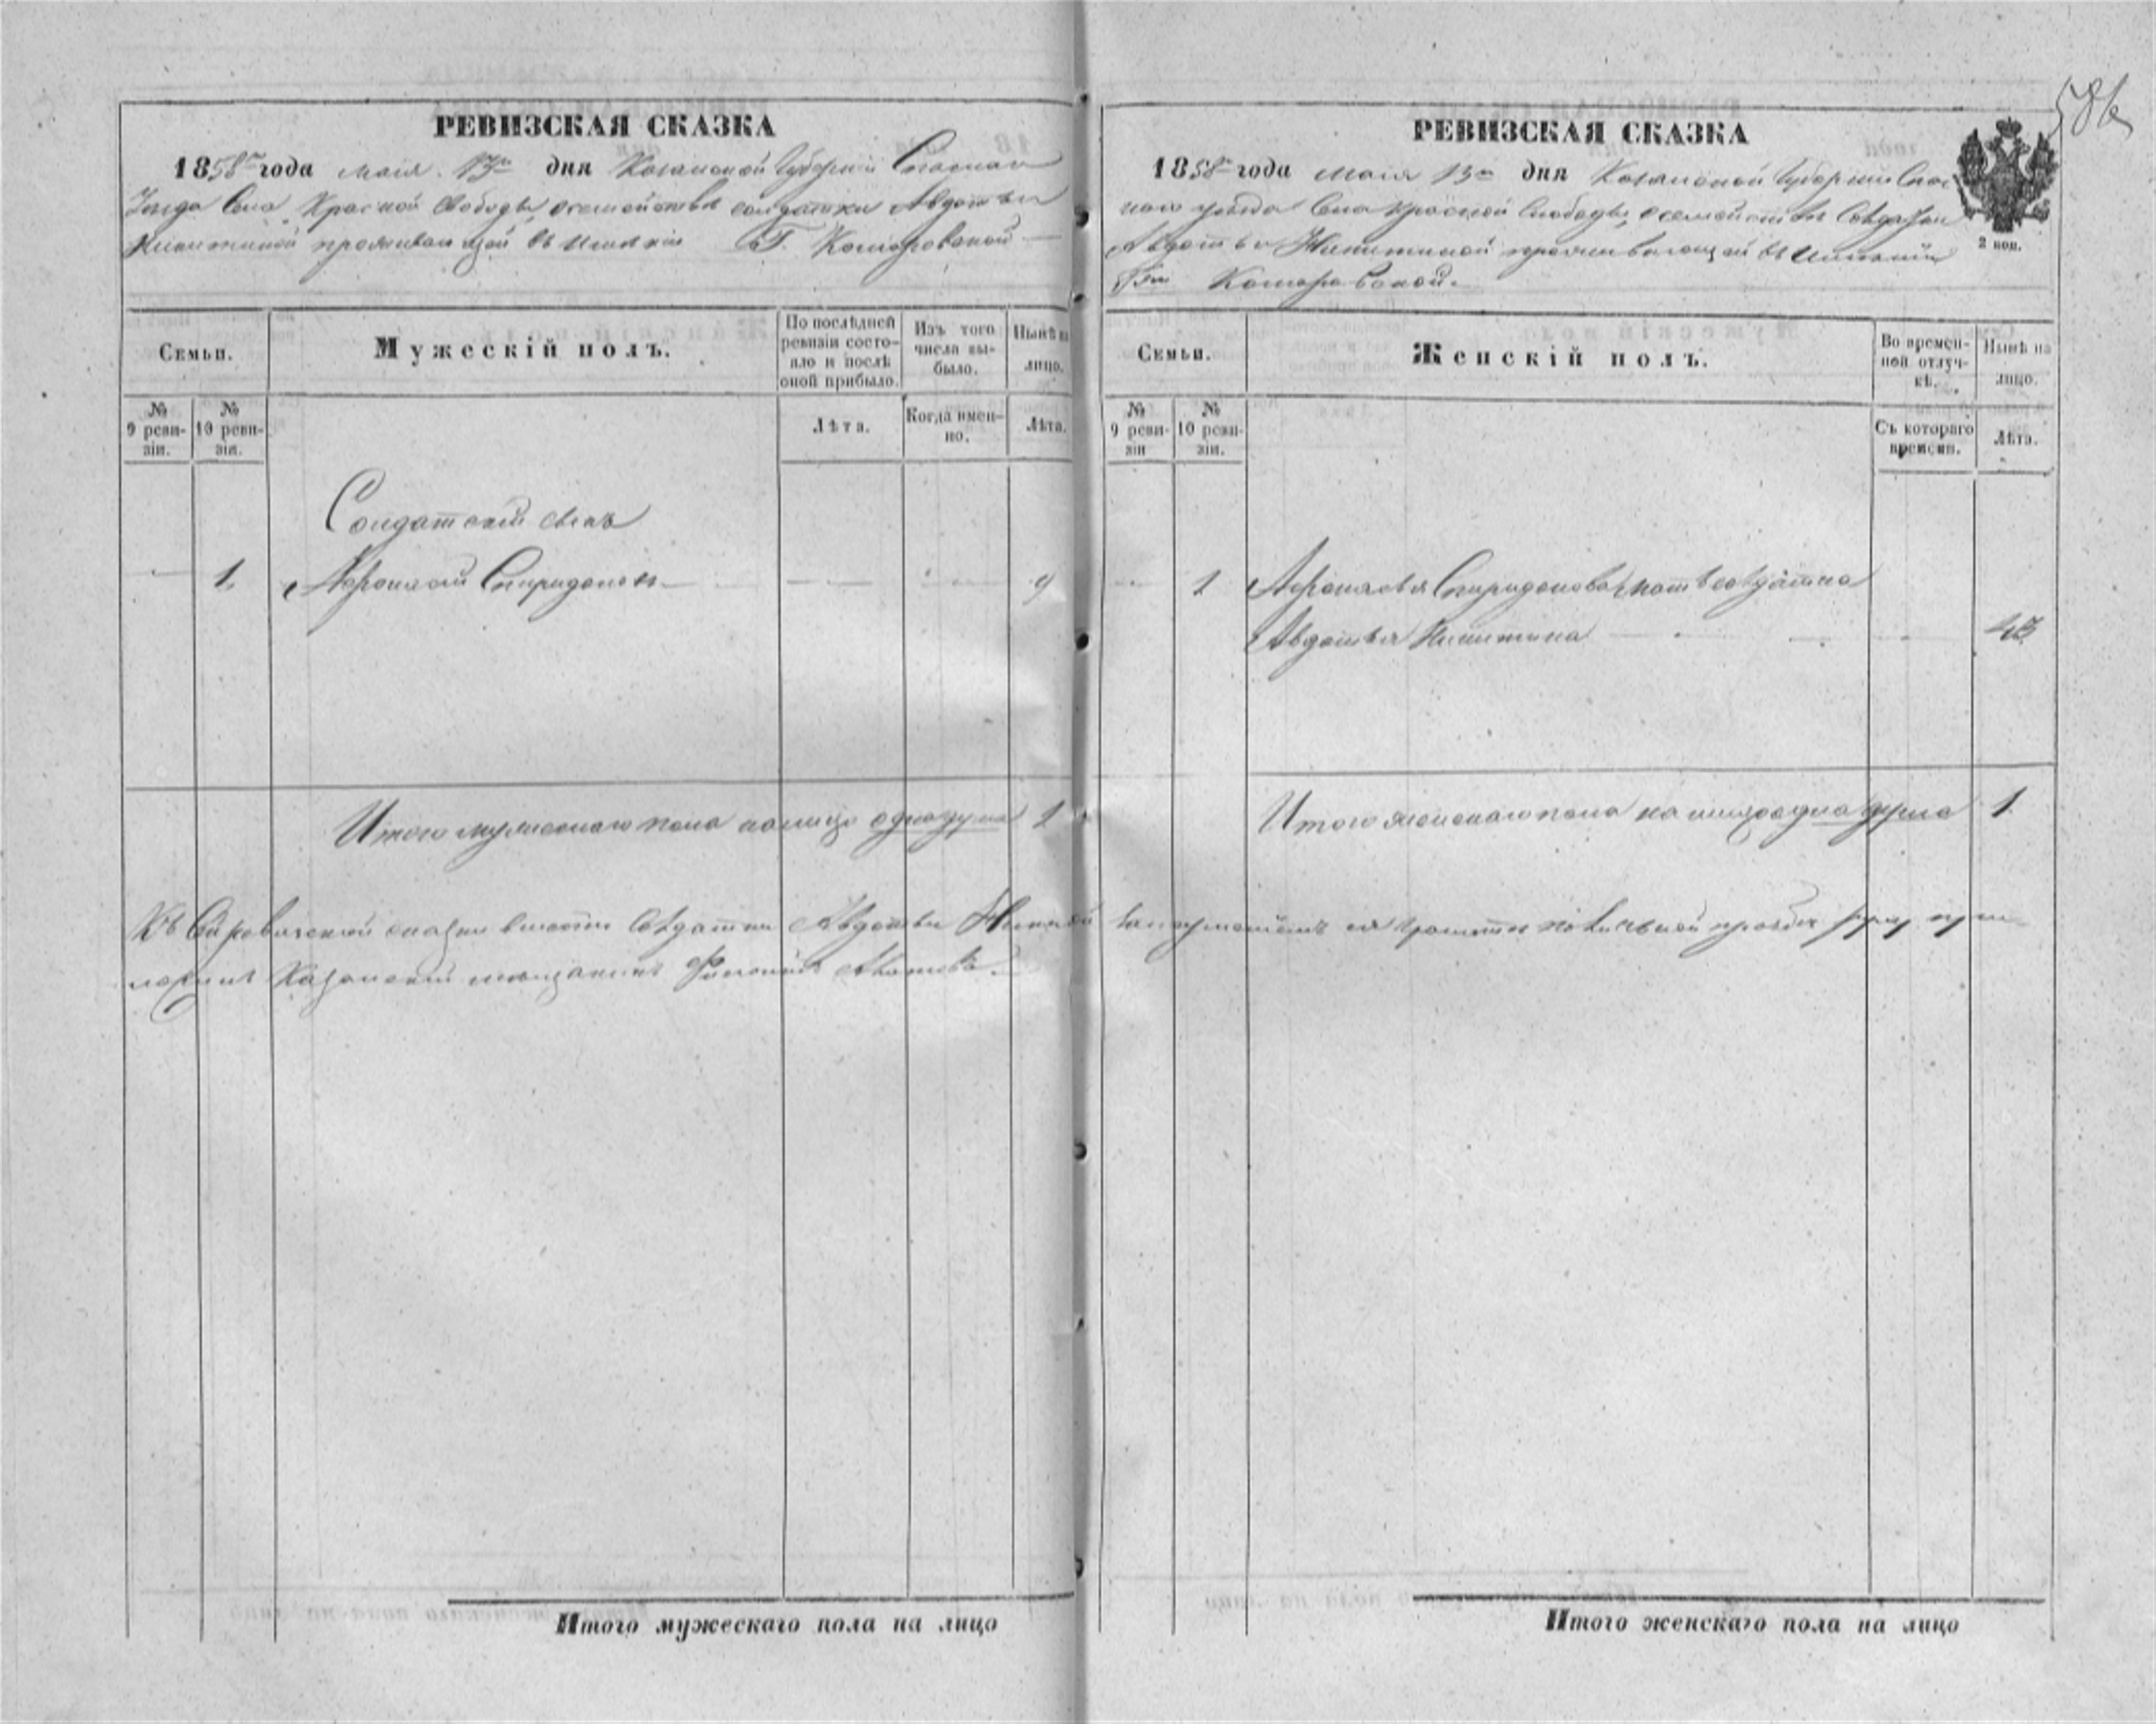 586
РЕВИЗСКАЯ СКАЗКА
1858го года маія 13го дня Казанской Губерніи Спаскаго
Уезда Села Красной Слободы, о семействе солдатки Авдотьи
Никитиной проживающей въ имѣніи Г. Комаровской
Семьи.
Мужескій полъ.
По послѣдней
ревизіи состо-
яло и послѣ
оной прибыло.
Изъ того
числа вы-
было.
Нынѣ на
лицо.
№
9 реви-
зіи.
№
10 реви-
зіи.
Лѣта.
Когда имен-
но.
Лѣта.
Солдатскій сынъ
1. Афонасій Спиридоновъ 9
Итого мужескаго пола на лицо одна душа 1
РЕВИЗСКАЯ СКАЗКА
1858го года маія 13го дня Казанской Губерніи Спас
каго уѣзда Села Красной Слободы, о семействѣ Солдатки
Авдотьи Никитиной проживающей въ имѣніи
Гжи Комаровской.
2 коп.
Семьи.
Женскій полъ.
Во времен-
ной отлуч-
кѣ.
Нынѣ на
лицо.
№
9 реви-
зіи
№
10 реви-
зіи.
Съ котораго
времени.
Лѣта.
1 Афонасья Спиридонова мать солдатка
Авдотья Никитина 43
Итого женскаго пола на лицо одна душа 1
Къ сей ревизской сказки вместо Солдатки Авдотьи за неуменіемъ ея грамоте по личной прозбе руку при
ложилъ Казанской мещанинъ
Итого мужескаго пола на лицо
Итого женскаго пола на лицо